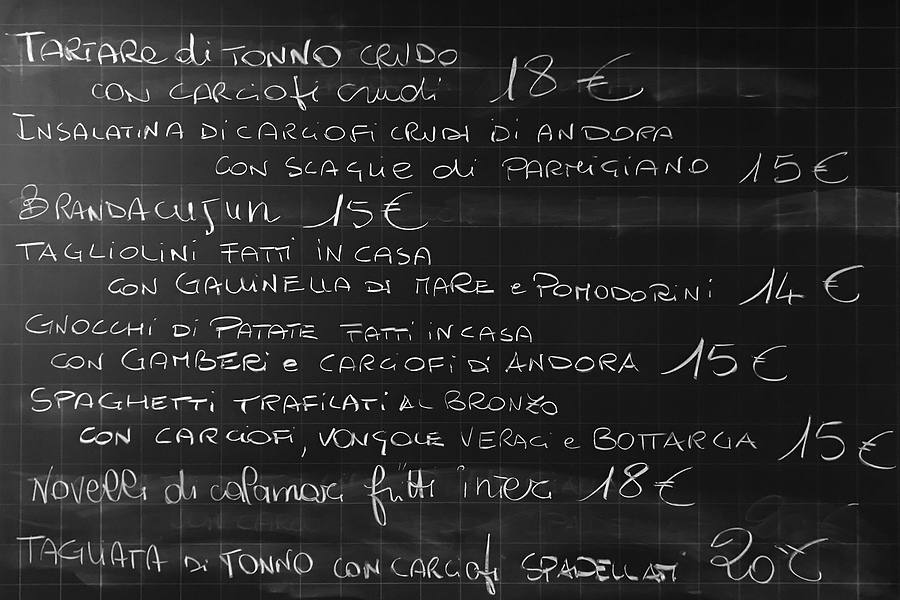 TARTARE di TONNO CRUDO
CON CARCIOFI CRUDI 18 €
INSALATINA DI CARCIOFI CRUDI DI ANDORA
CON SCAGLIE di PARMIGIANO 15 €
BRANDACUJUN 15 €
TAGLIOLINI FATTI IN CASA
CON GALLINELLA DI MARE e POMODORINI 14 €
GNOCCHI DI PATATE FATTI IN CASA
CON GAMBERI e CARCIOFI DI ANDORA 15 €
SPAGHETTI TRAFILATI AL BRONZO
CON CARCIOFI, VONGOLE VERACI e BOTTARGA 15 €
Novelli di calamari fritti interi 18 €
TAGLIATA DI TONNO CON CARCIOFI SPADELLATI 20 €